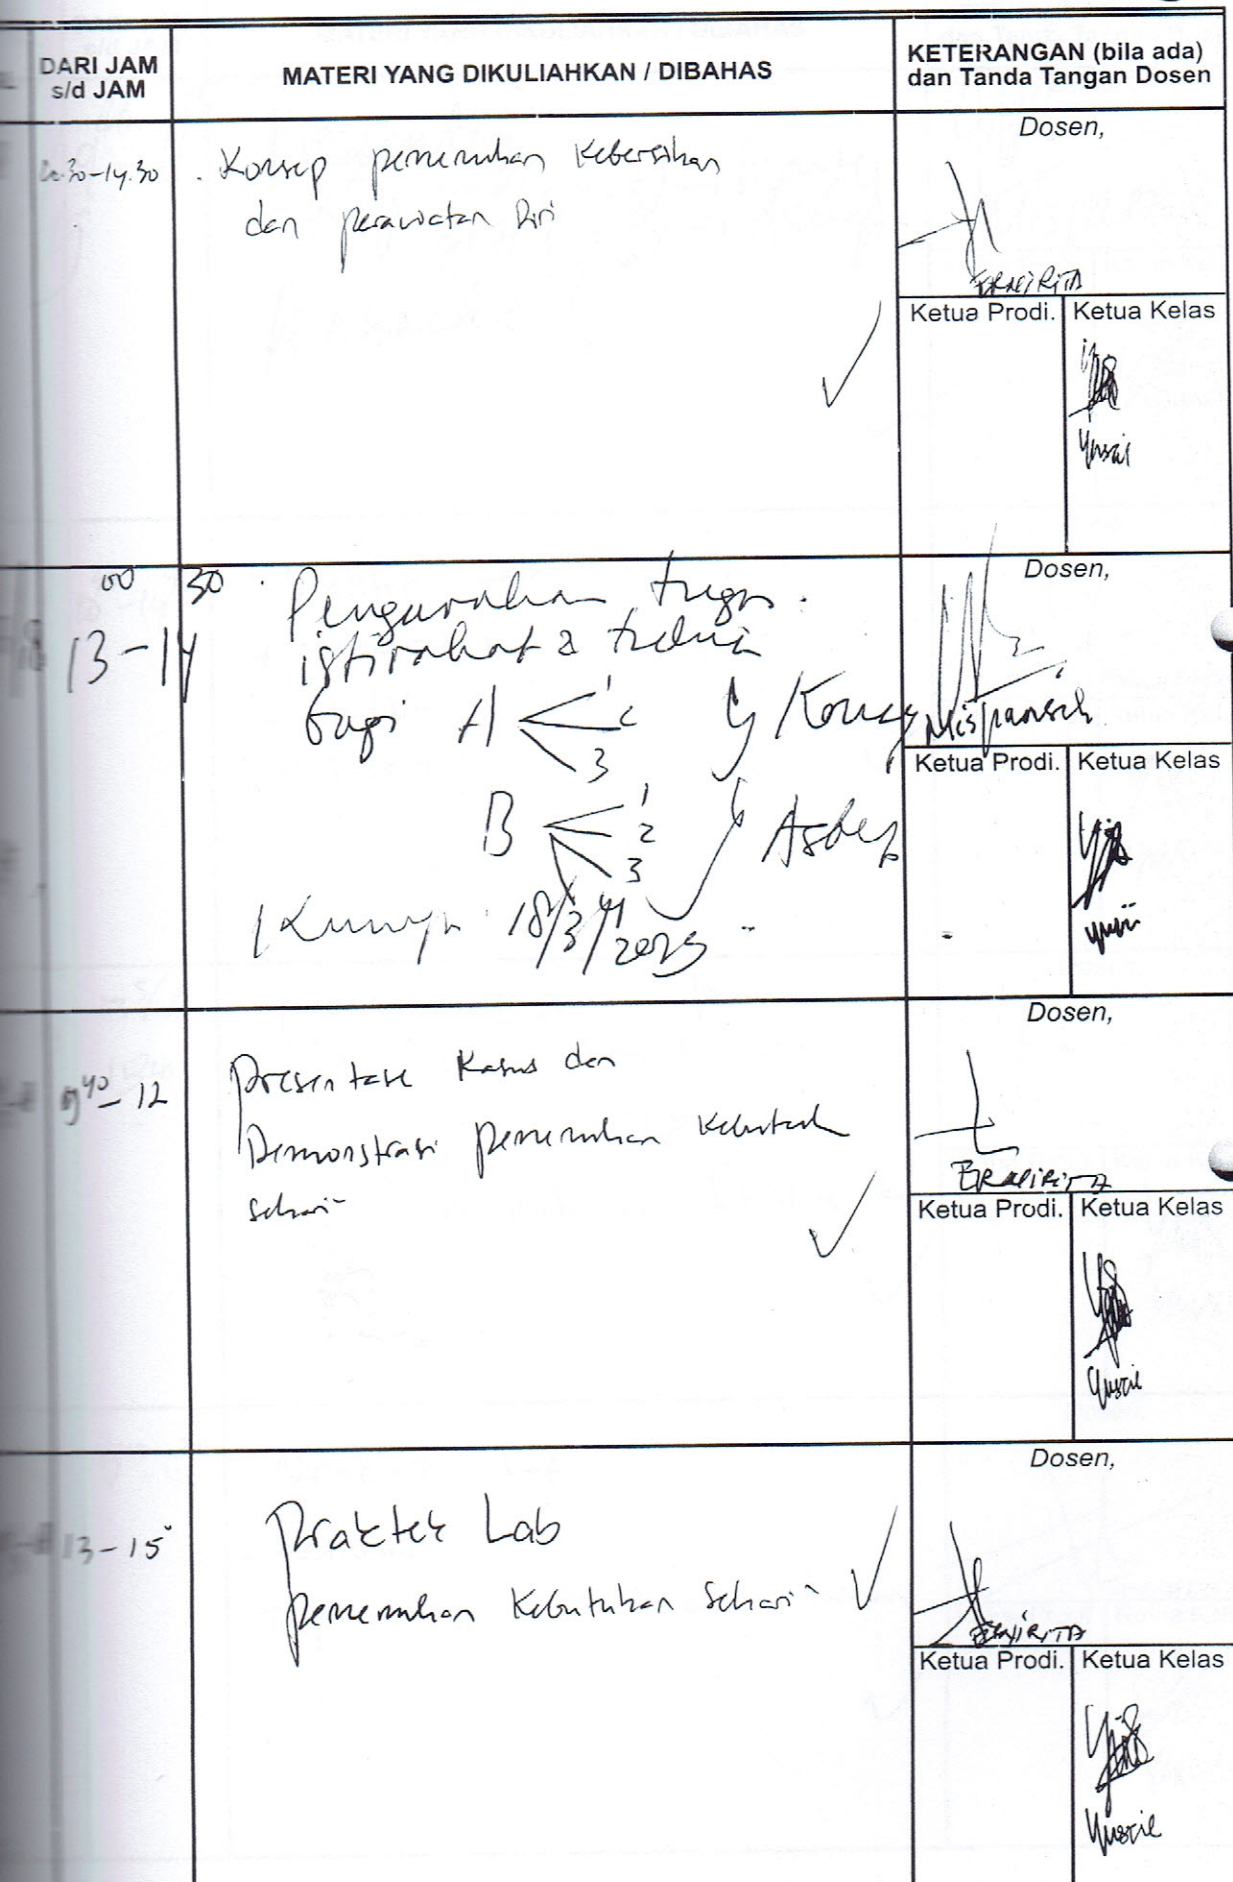 DARI JAM
s/d JAM
MATERI YANG DIKULIAHKAN / DIBAHAS
KETERANGAN (bila ada)
dan Tanda Tangan Dosen
.30-14.30
. Konsep pemenuhan Kebersihan
dan perawatan Diri
Dosen,
ERNIRITA
Ketua Prodi.
Ketua Kelas
13 00 - 14 30
Pengarahan tugas.
istirahat & tidur
bagi A 1
2
3
B 1
2
3
Konsep
Askep
18/3/2025
Dosen,
Ketua Prodi.
Ketua Kelas
9 40 - 12
Presentase Kasus dan
Demonstrasi pemenuhan Kebutuh
sehari-
Dosen,
ERNIRITA
Ketua Prodi.
Ketua Kelas
13 - 15
Praktek Lab
pemenuhan Kebutuhan Sehari"
Dosen,
ERNIRITA
Ketua Prodi.
Ketua Kelas